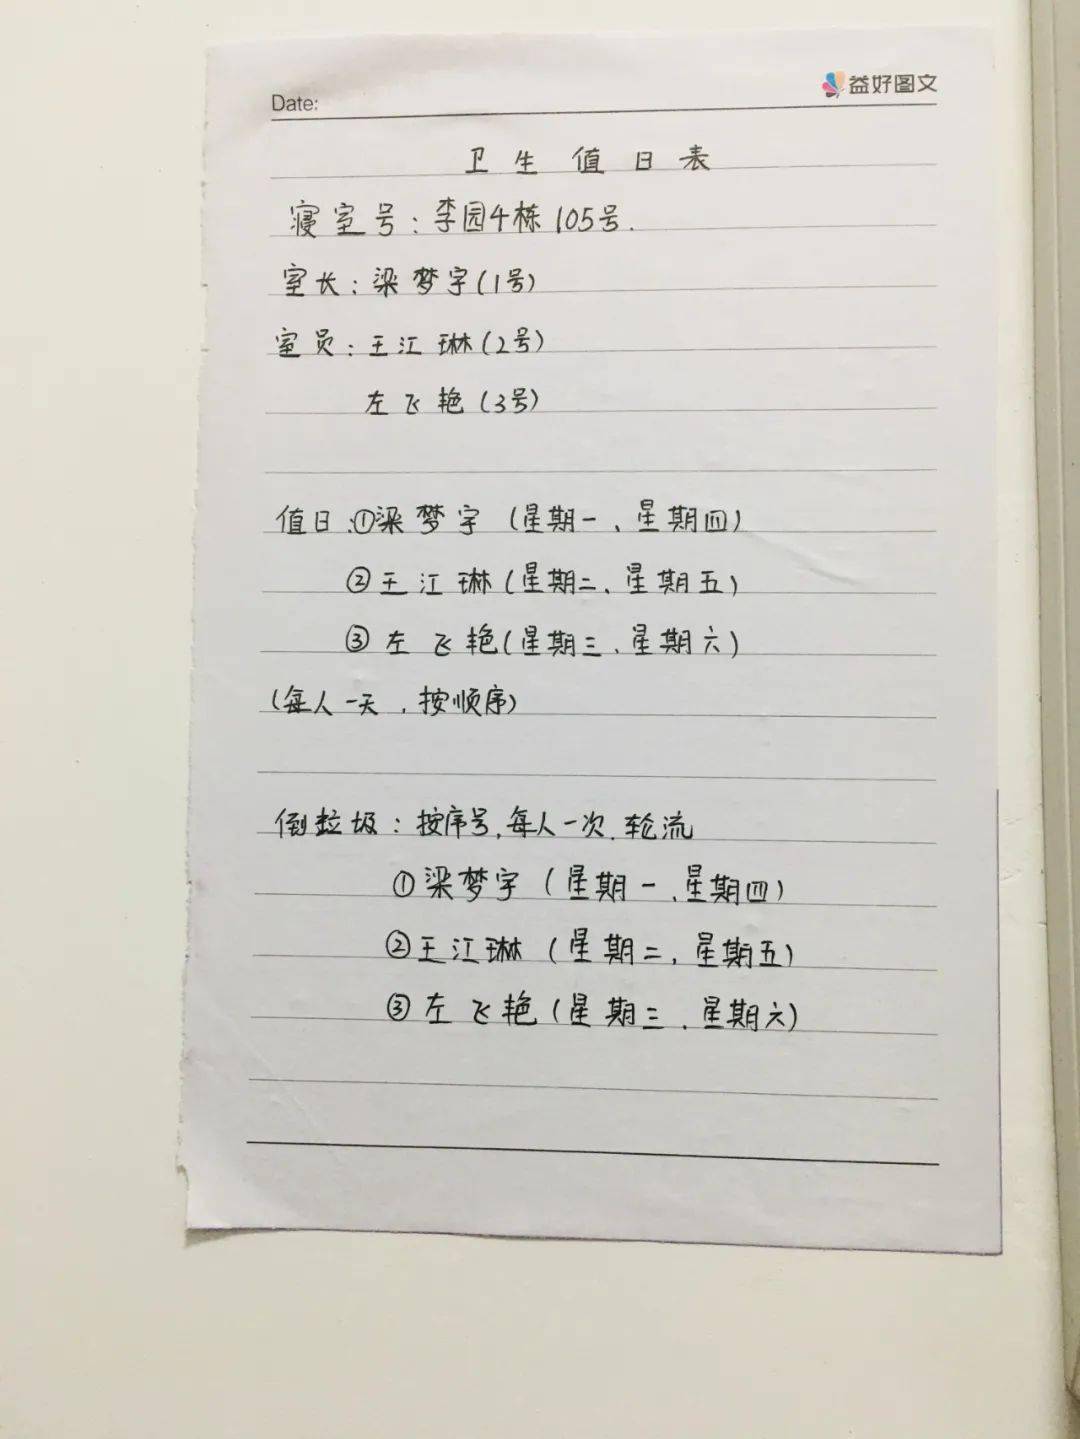 Date:
益好图文
卫生值日表
寝室号:李园4栋105号.
室长:梁梦宇(1号)
室员:王江琳(2号)
左飞艳(3号)
值日:①梁梦宇(星期一、星期四)
②王江琳(星期二、星期五)
③左飞艳(星期三、星期六)
(每人一天,按顺序)
倒垃圾:按序号,每人一次,轮流
①梁梦宇(星期一、星期四)
②王江琳(星期二,星期五)
③左飞艳(星期三、星期六)